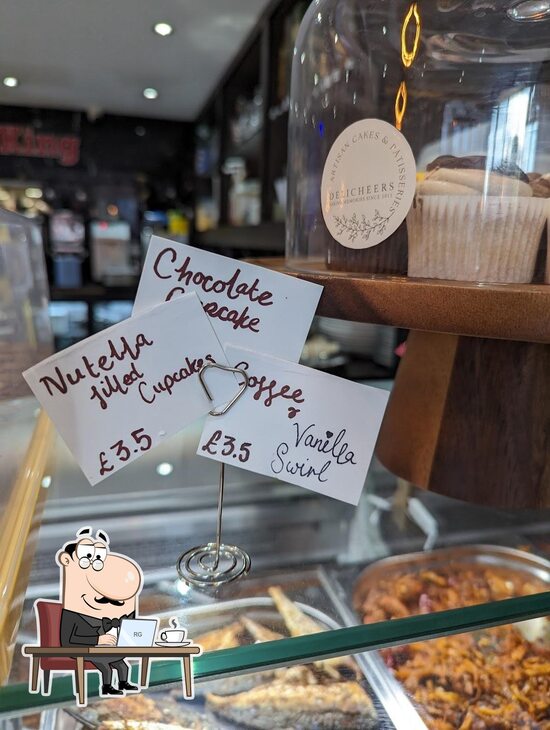 King
ARTISAN CAKES & PATISSERIES
DELICHEERS
Chocolate
Cupcake
Nutella
filled
Cupcakes
£3.5
Coffee
&
Vanilla
Swirl
£3.5
RG